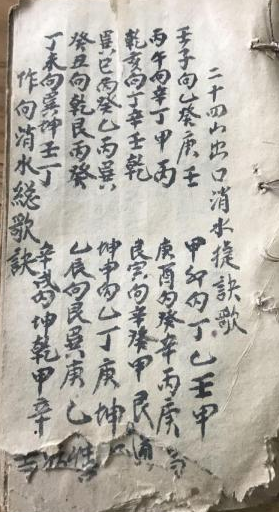 二十四山出口消水捷訣歌
壬子向乙癸庚壬 甲卯向丁乙壬甲
丙午向辛丁甲丙 庚酉向癸辛丙庚
乾亥向丁辛壬乾 艮寅向辛癸甲艮
巽巳丙癸乙丙巽 坤申向乙丁庚坤
癸丑向乾艮丙癸 乙辰向艮巽庚乙
丁未向巽坤壬丁 辛戌向坤乾甲辛
作向消水總歌訣